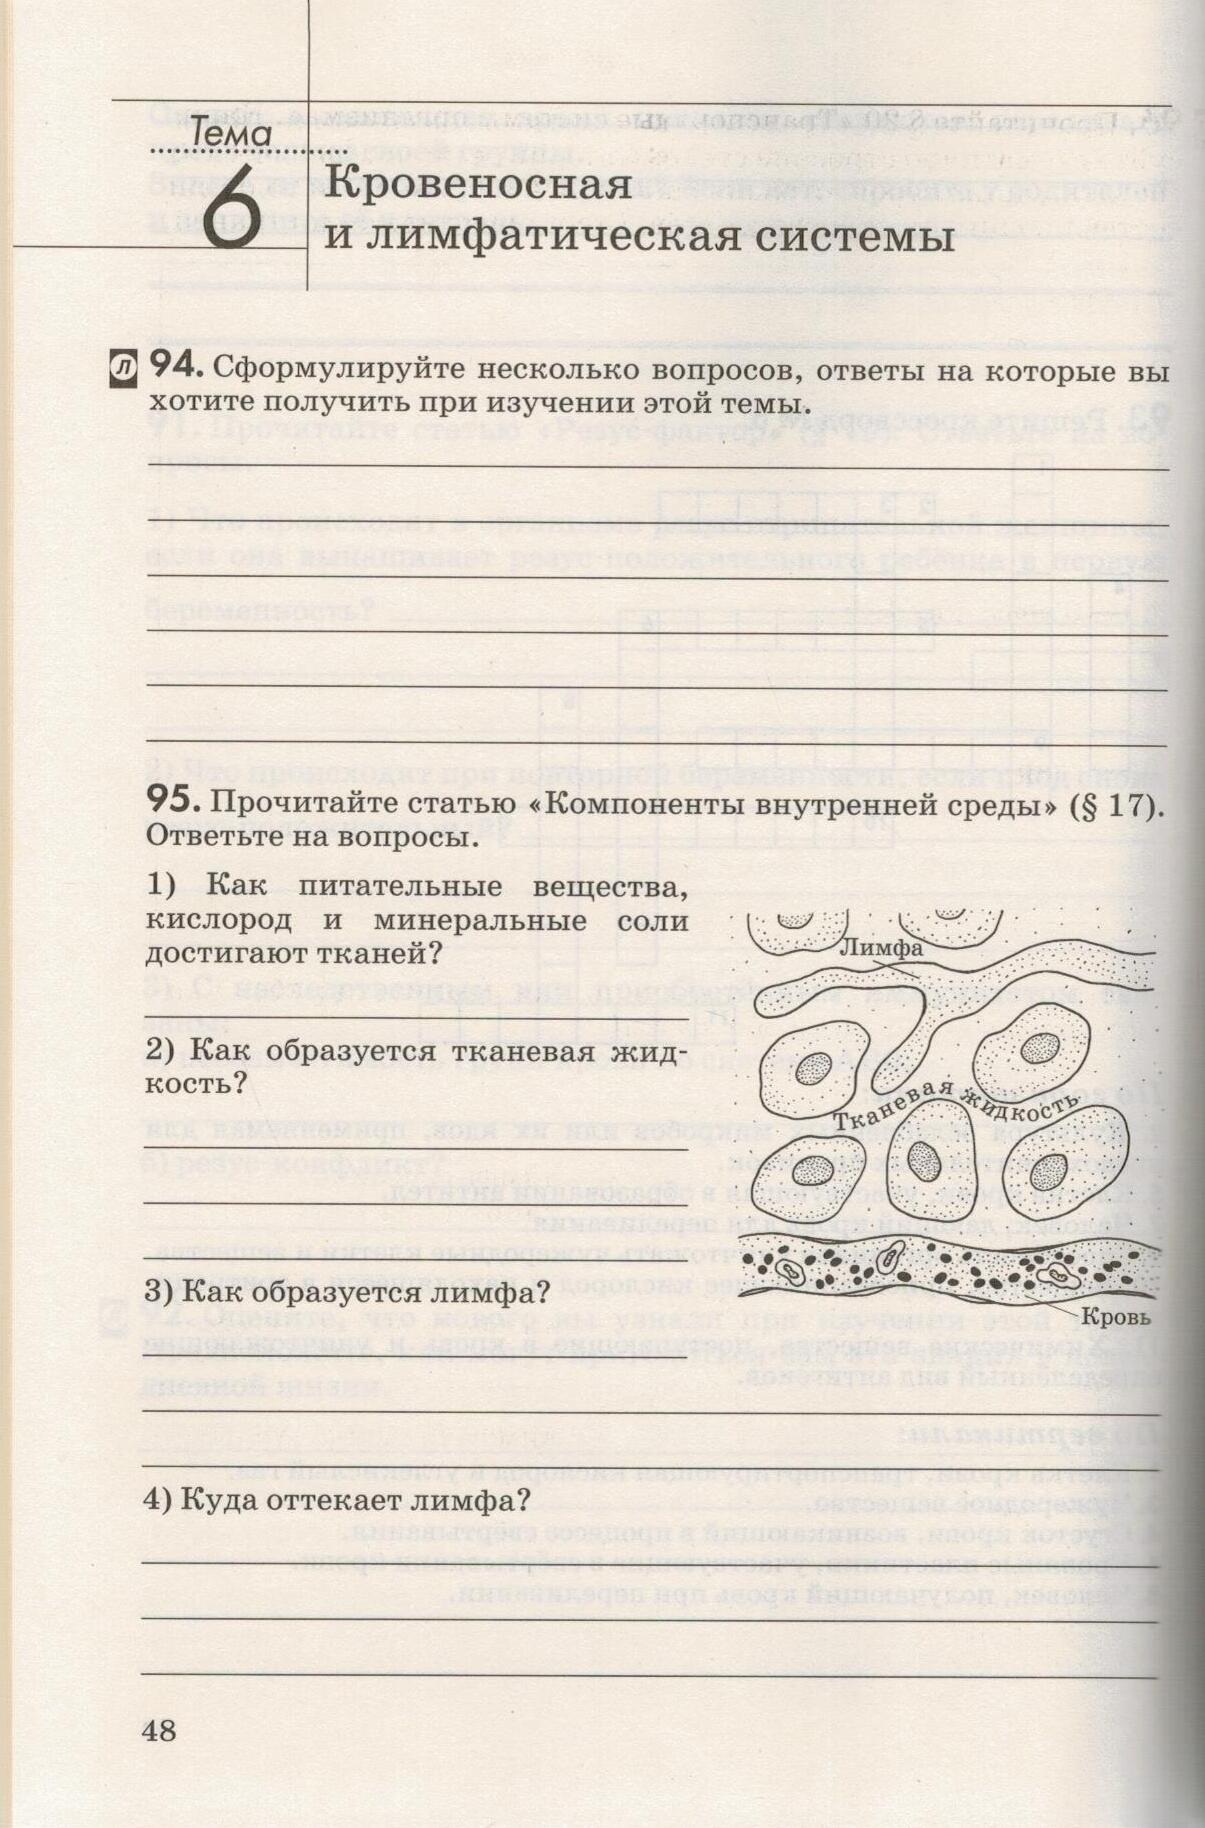 Тема
6
Кровеносная
и лимфатическая системы
Л 94. Сформулируйте несколько вопросов, ответы на которые вы
хотите получить при изучении этой темы.
95. Прочитайте статью «Компоненты внутренней среды» (§ 17).
Ответьте на вопросы.
1) Как питательные вещества,
кислород и минеральные соли
достигают тканей?
2) Как образуется тканевая жид-
кость?
3) Как образуется лимфа?
4) Куда оттекает лимфа?
Лимфа
Тканевая жидкость
Кровь
48